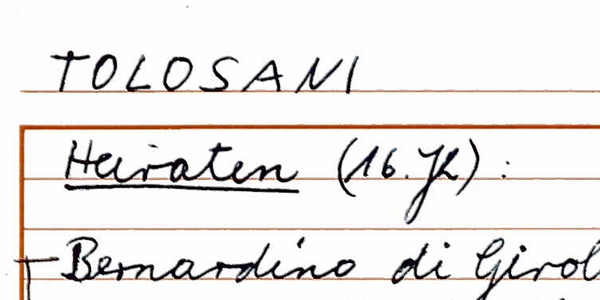 TOLOSANI
Heiraten (16. Jh) :
Bernardino di Girol